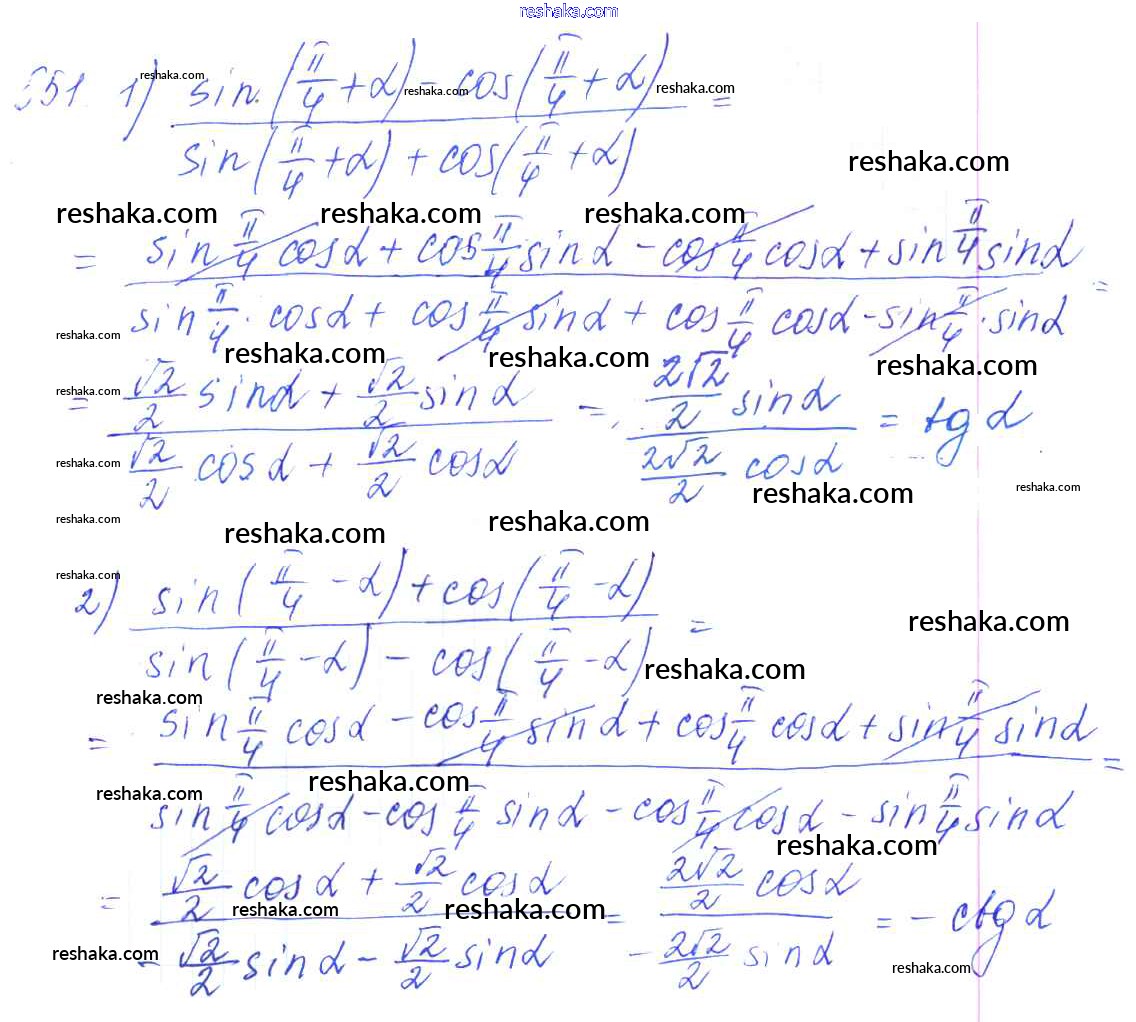 reshaka.com
651. 1) sin(π/4 + α) - cos(π/4 + α) / sin(π/4 + α) + cos(π/4 + α) =
= sin π/4 cosα + cos π/4 sinα - cos π/4 cosα + sin π/4 sinα / sin π/4 · cosα + cos π/4 sinα + cos π/4 cosα - sin π/4 · sinα =
= √2/2 sinα + √2/2 sinα / √2/2 cosα + √2/2 cosα = 2√2/2 sinα / 2√2/2 cosα = tg α
2) sin(π/4 - α) + cos(π/4 - α) / sin(π/4 - α) - cos(π/4 - α) =
= sin π/4 cosα - cos π/4 sinα + cos π/4 cosα + sin π/4 sinα / sin π/4 cosα - cos π/4 sinα - cos π/4 cosα - sin π/4 sinα =
= √2/2 cosα + √2/2 cosα / - √2/2 sinα - √2/2 sinα = 2√2/2 cosα / - 2√2/2 sinα = - ctg α